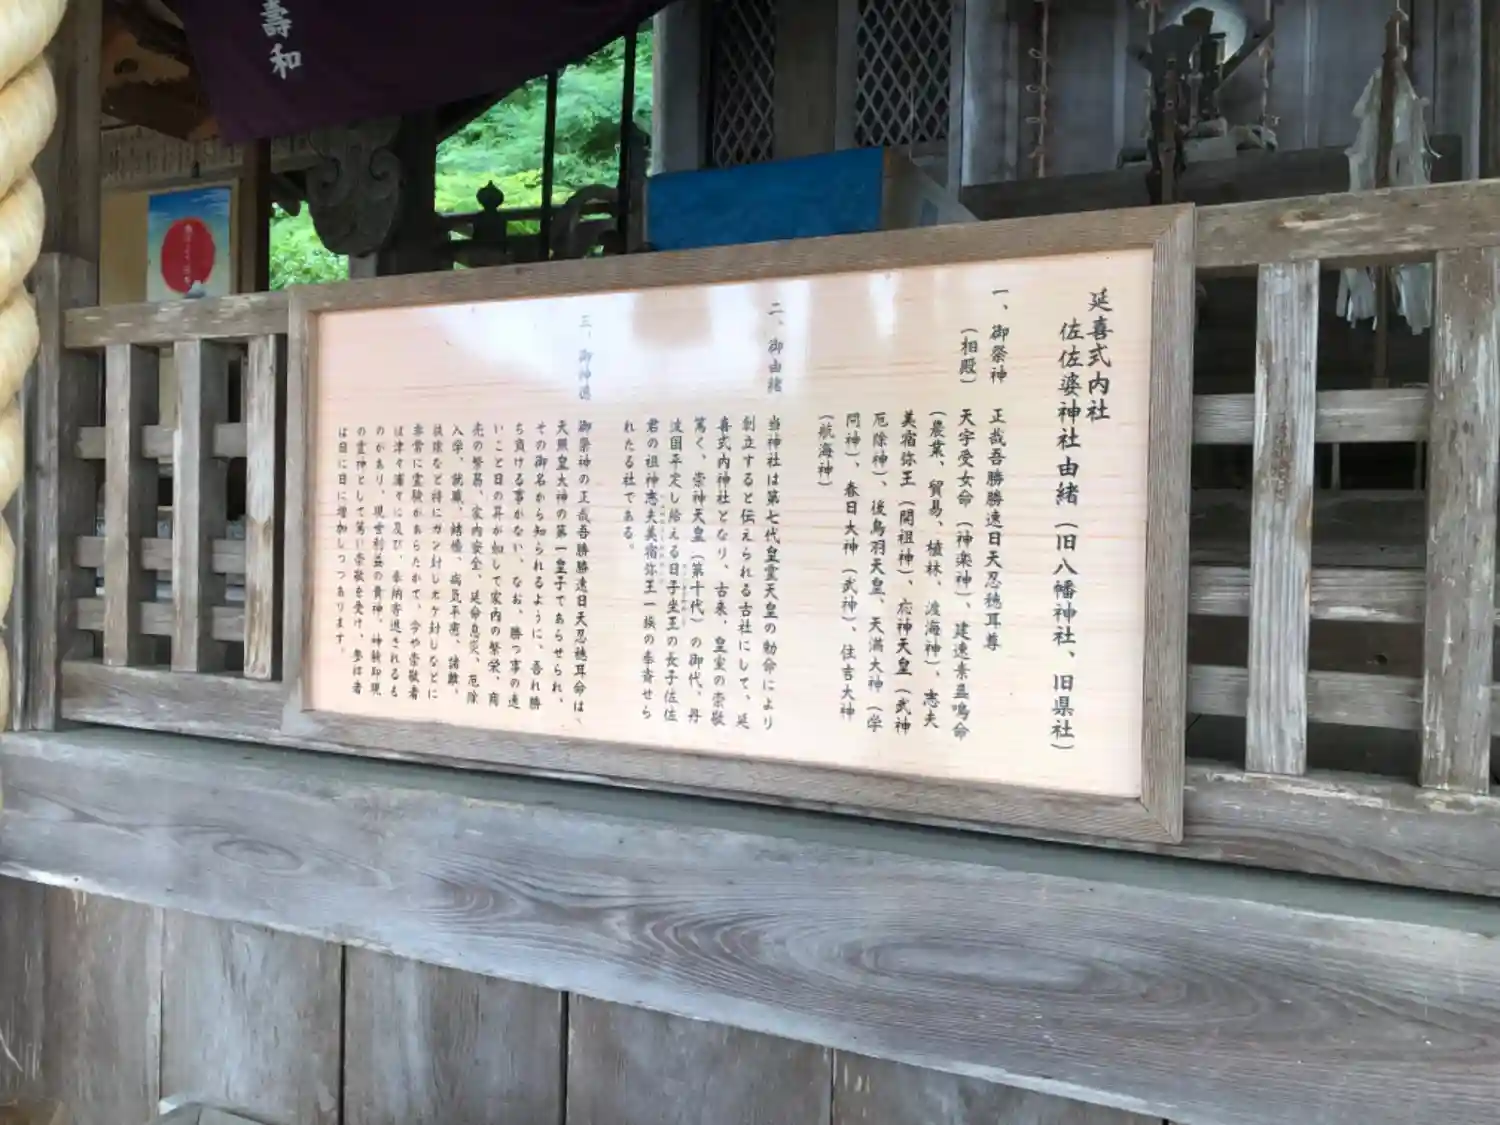 延喜式内社
佐佐婆神社由緒（旧八幡神社、旧県社）
一、御祭神　正哉吾勝勝速日天忍穂耳尊
（相殿）　天宇受女命（神楽神）、建速素盞嗚命
（農業、貿易、植林、渡海神）、志夫
美宿弥王（開祖神）、応神天皇（武神
厄除神）、後鳥羽天皇、天満大神（学
問神）、春日大神（武神）、住吉大神
（航海神）
二、御由緒　当神社は第七代皇霊天皇の勅命により
創立すると伝えられる古社にして、延
喜式内神社となり、古来、皇室の崇敬
篤く、崇神天皇（第十代）の御代、丹
波国平定し給える日子坐王の長子佐佐
君の祖神志夫美宿弥王一族の奉斎せら
れたる社である。
三、御神徳　御祭神の正哉吾勝勝速日天忍穂耳命は、
天照皇大神の第一皇子であらせられ、
その御名から知られるように、吾れ勝
ち負ける事がない、なお、勝つ事の速
いこと日の昇が如しで家内の繁栄、商
売の繁昌、家内安全、延命息災、厄除
入学、就職、結婚、病気平癒、諸難、
抜除など特にガン封じボケ封じなどに
非常に霊験があらたかで、今や崇敬者
は津々浦々に及び、奉納寄進されるも
のがあり、現世利益の貴神、神験即現
の霊神として篤い崇敬を受け、参拝者
は日に日に増加しつつあります。
壽和